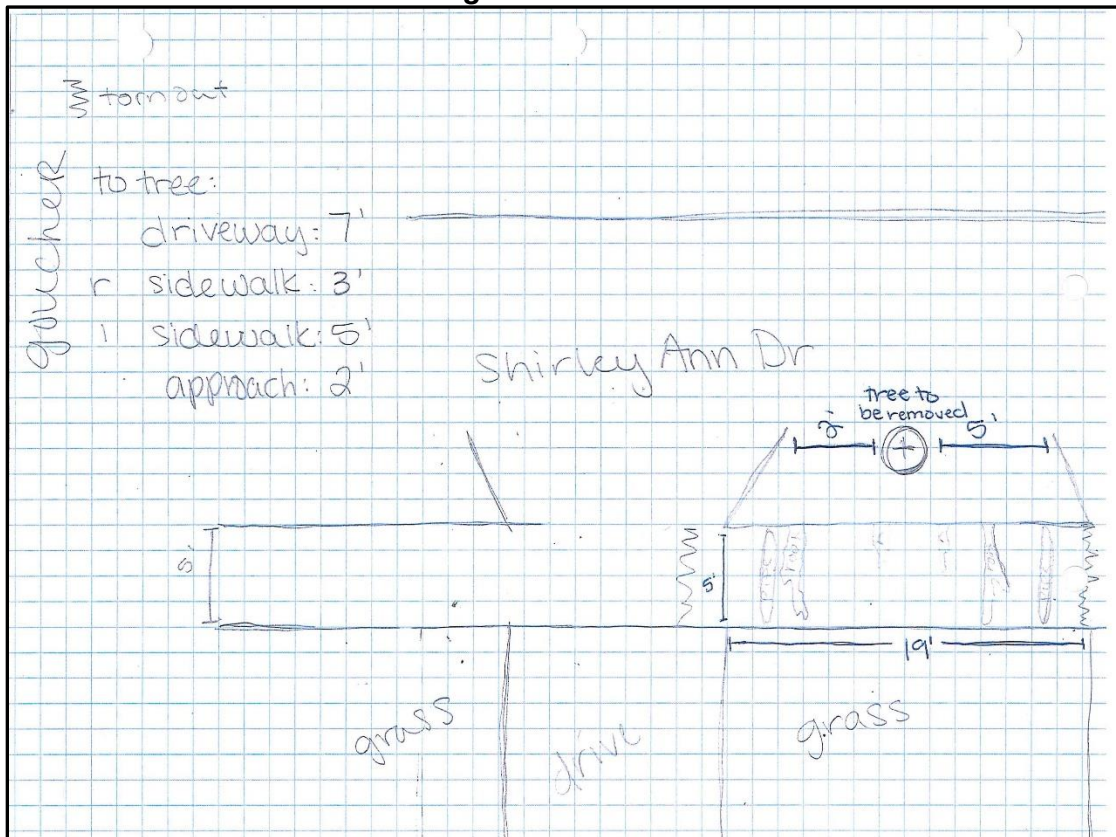 torn out
goucher
to tree:
driveway: 7'
r sidewalk: 3'
l sidewalk: 5'
approach: 2'
Shirley Ann Dr
tree to
be removed
5'
5'
5'
PIPE
PIPE
19'
grass
drive
grass